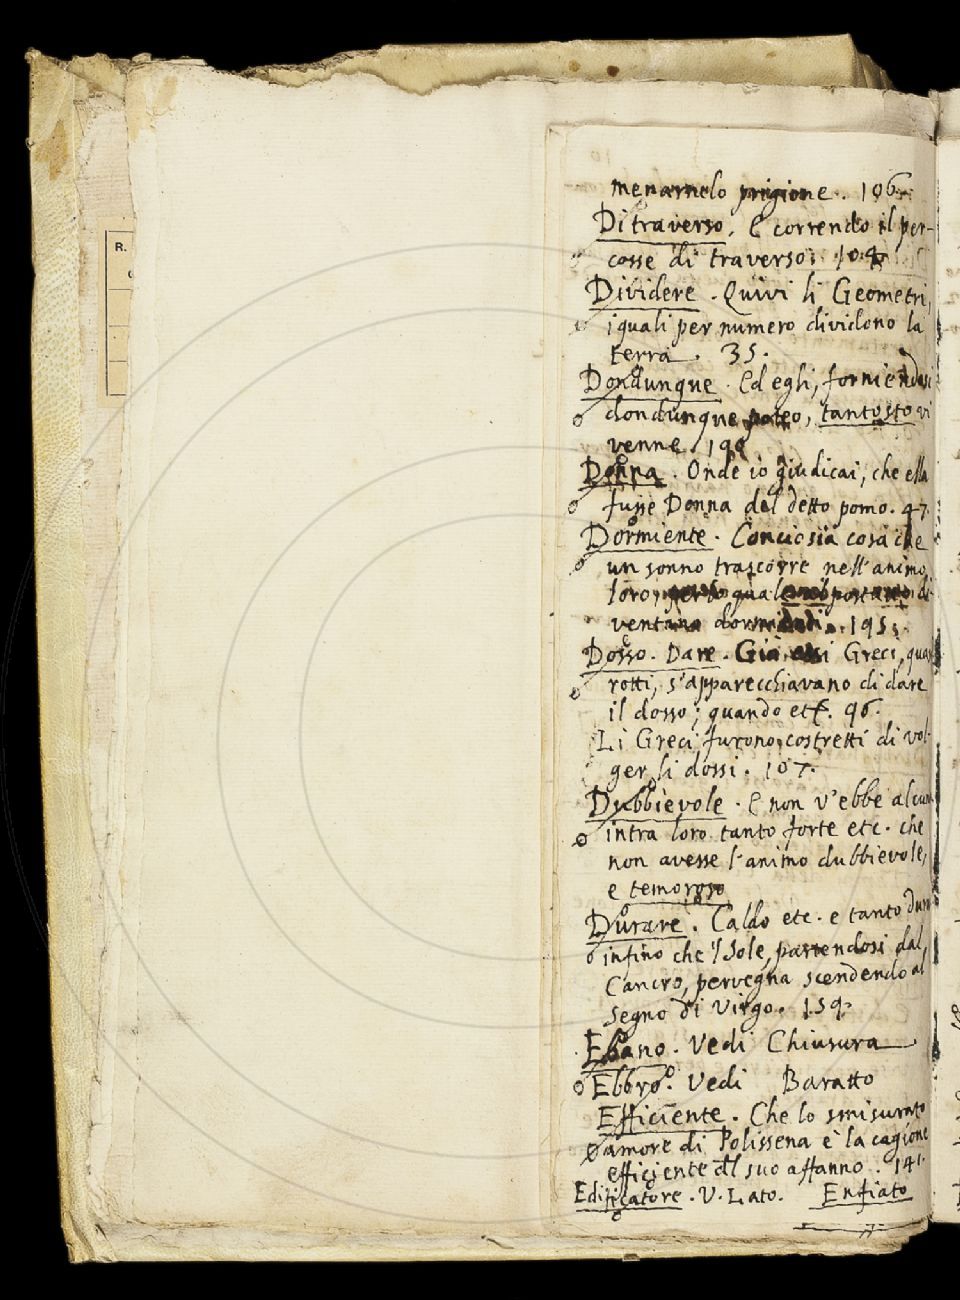 R.
menarnelo prigione. 106.
Di traverso. E correndo il per-
cosse di traverso. 104
Dividere. Quivi li Geometri,
iquali per numero dividono la
terra. 35.
Dondunque. Ed egli, forniendosi
dondunque poteo, tantosto vi
venne.
Donna. Onde io giudicai, che ella
fusse Donna del detto pomo. 47.
Dormiente. Conciosia cosa che
un sonno trascorre nell'animo
loro, per lo quale di-
ventano 195.
Dosso. Dare. Già Greci, quasi
rotti, s'apparecchiavano di dare
il dosso; quando etc. 96.
Li Greci furono costretti di vol-
ger li dossi. 107.
Dubbievole. E non v'ebbe alcun
intra loro tanto forte etc. che
non avesse l'animo dubbievole,
e temoroso
Durare. Caldo etc. e tanto dura
infino che 'l Sole, partendosi dal
Cancro, pervegna scendendo al
segno di Virgo. 159.
Ebano. Vedi Chiusura
Ebbro. Vedi Baratto
Efficiente. Che lo smisurato
amore di Polissena è la cagione
efficiente del suo affanno. 141.
Edificatore. V. Lato. Enfiato